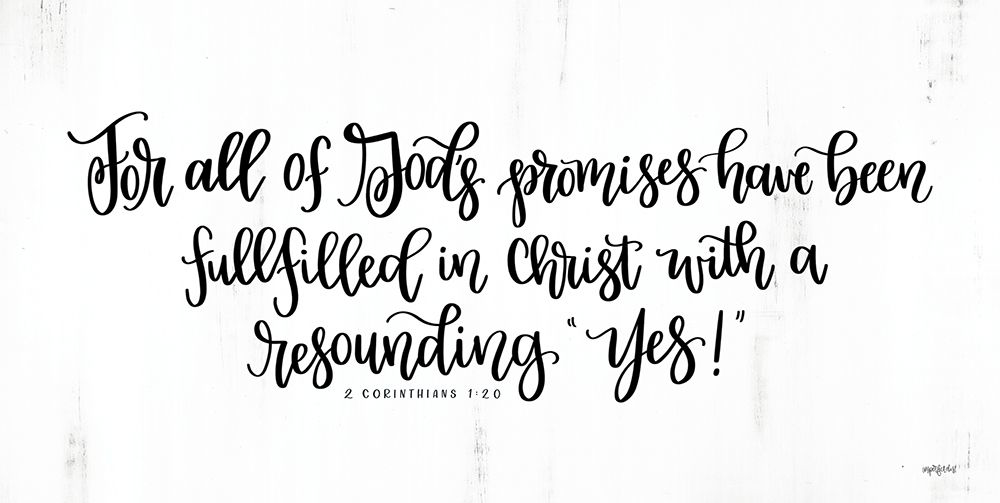 For all of God's promises have been
fullfilled in Christ with a
resounding "Yes!"
2 CORINTHIANS 1:20